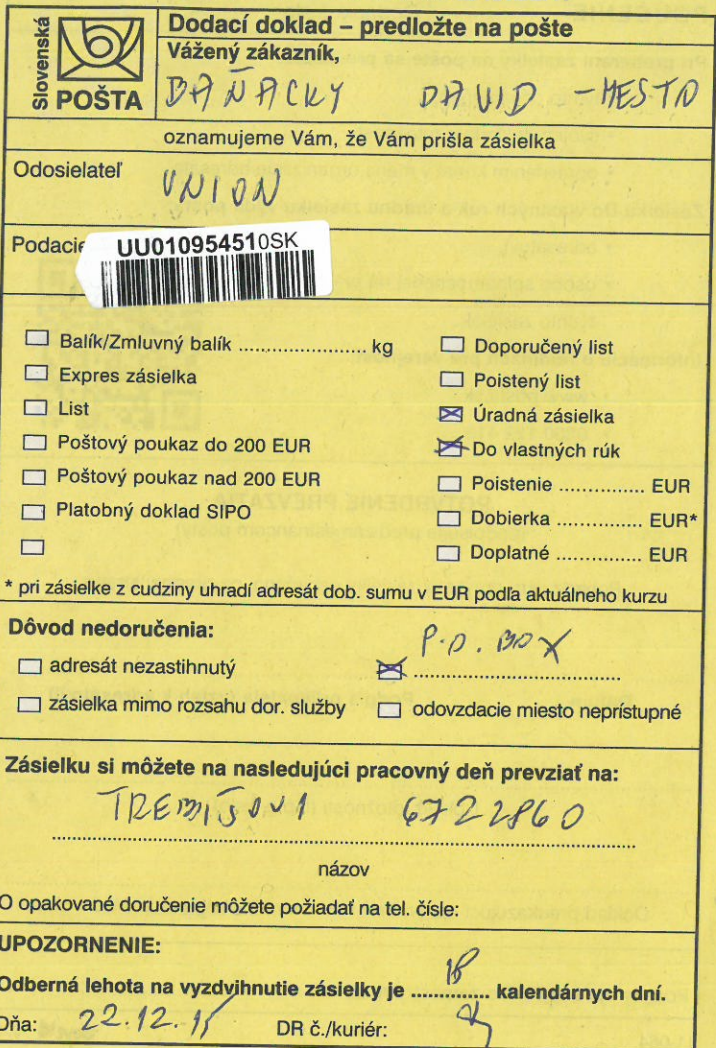 Slovenská
POŠTA
Dodací doklad – predložte na pošte
Vážený zákazník,
DAŇACKY DAVID - MESTO
oznamujeme Vám, že Vám prišla zásielka
Odosielateľ
UNION
UU010954510SK
Balík/Zmluvný balík ........................ kg
Expres zásielka
List
Poštový poukaz do 200 EUR
Poštový poukaz nad 200 EUR
Platobný doklad SIPO
Doporučený list
Poistený list
Úradná zásielka
Do vlastných rúk
Poistenie ............... EUR
Dobierka ............ EUR*
Doplatné .............. EUR
* pri zásielke z cudziny uhradí adresát dob. sumu v EUR podľa aktuálneho kurzu
Dôvod nedoručenia:
P.O. BOX
adresát nezastihnutý
zásielka mimo rozsahu dor. služby
odovzdacie miesto neprístupné
Zásielku si môžete na nasledujúci pracovný deň prevziať na:
TREBIŠOV 1 6722860
názov
O opakované doručenie môžete požiadať na tel. čísle:
UPOZORNENIE:
Odberná lehota na vyzdvihnutie zásielky je 18 kalendárnych dní.
Dňa: 22.12.15 DR č./kuriér: